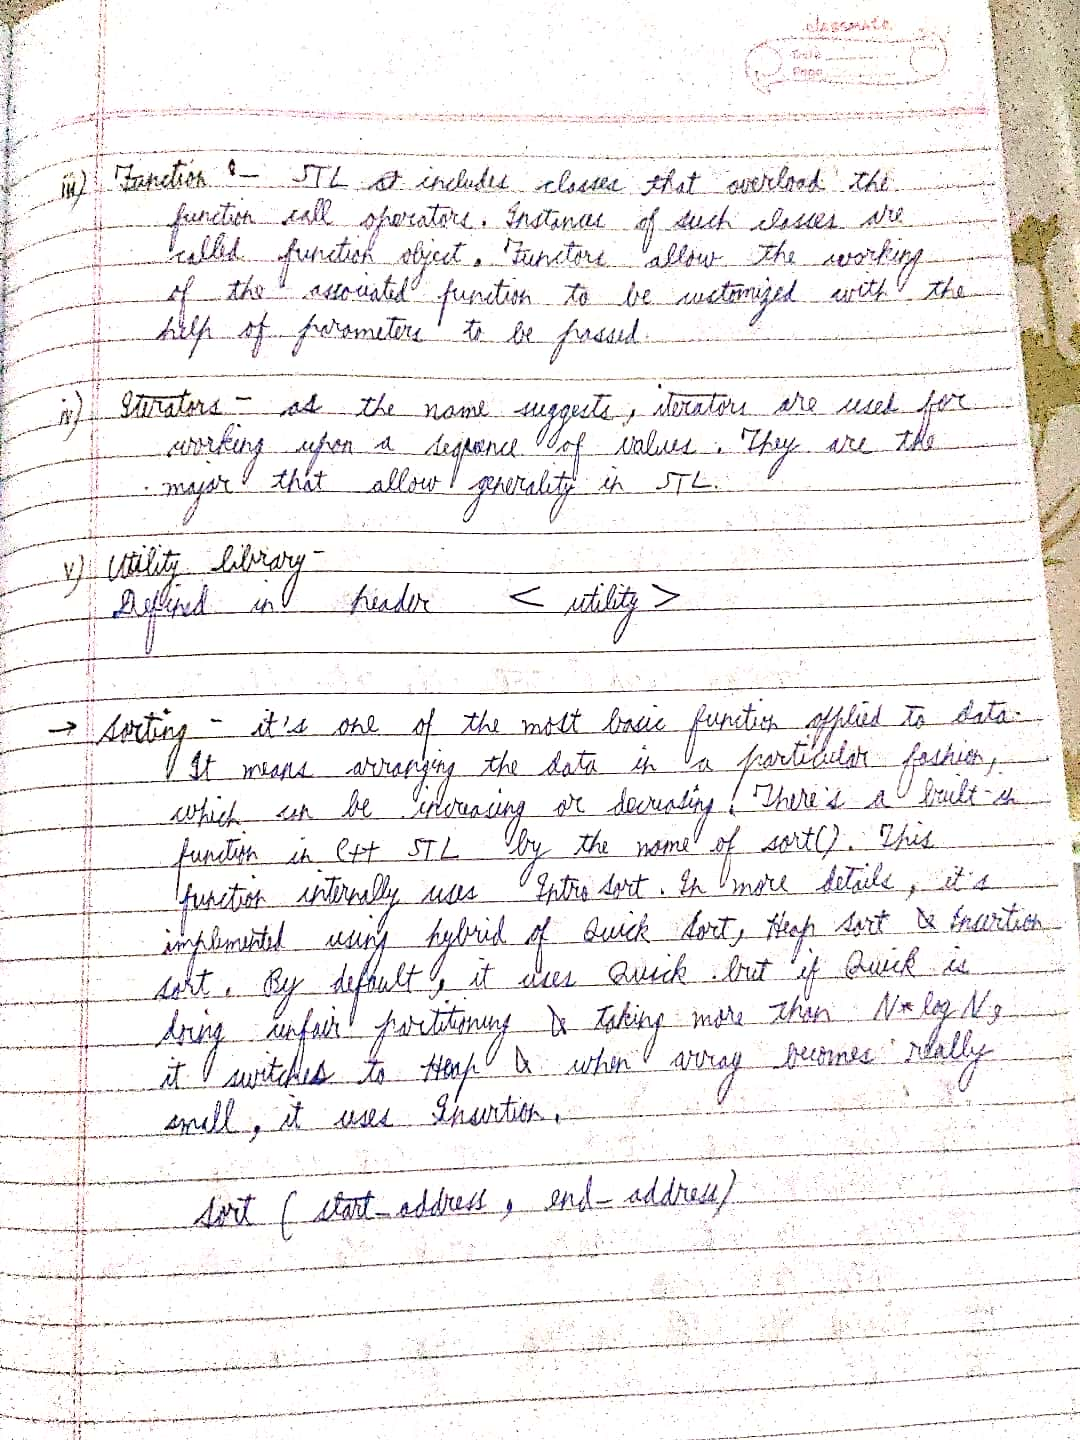 classmate
Date
Page
iii) Function :- STL it includes classes that overload the
function call operators. Instances of such classes are
called function object. Functors allow the working
of the associated function to be customized with the
help of parameters to be passed.
iv) Iterators - as the name suggests, iterators are used for
working upon a sequence of values. They are the
major that allow generality in STL.
v) Utility library -
Defined in header < utility >
→ Sorting - it's one of the most basic function applied to data.
It means arranging the data in a particular fashion,
which can be increasing or decreasing. There's a built-in
function in C++ STL by the name of sort(). This
function internally uses Intro Sort. In more details, it's
implemented using hybrid of Quick Sort, Heap Sort & Insertion
sort. By default, it uses Quick but if Quick is
doing unfair partitioning & taking more than N*log N,
it switches to Heap & when array becomes really
small, it uses Insertion.
Sort ( start_address, end_address)